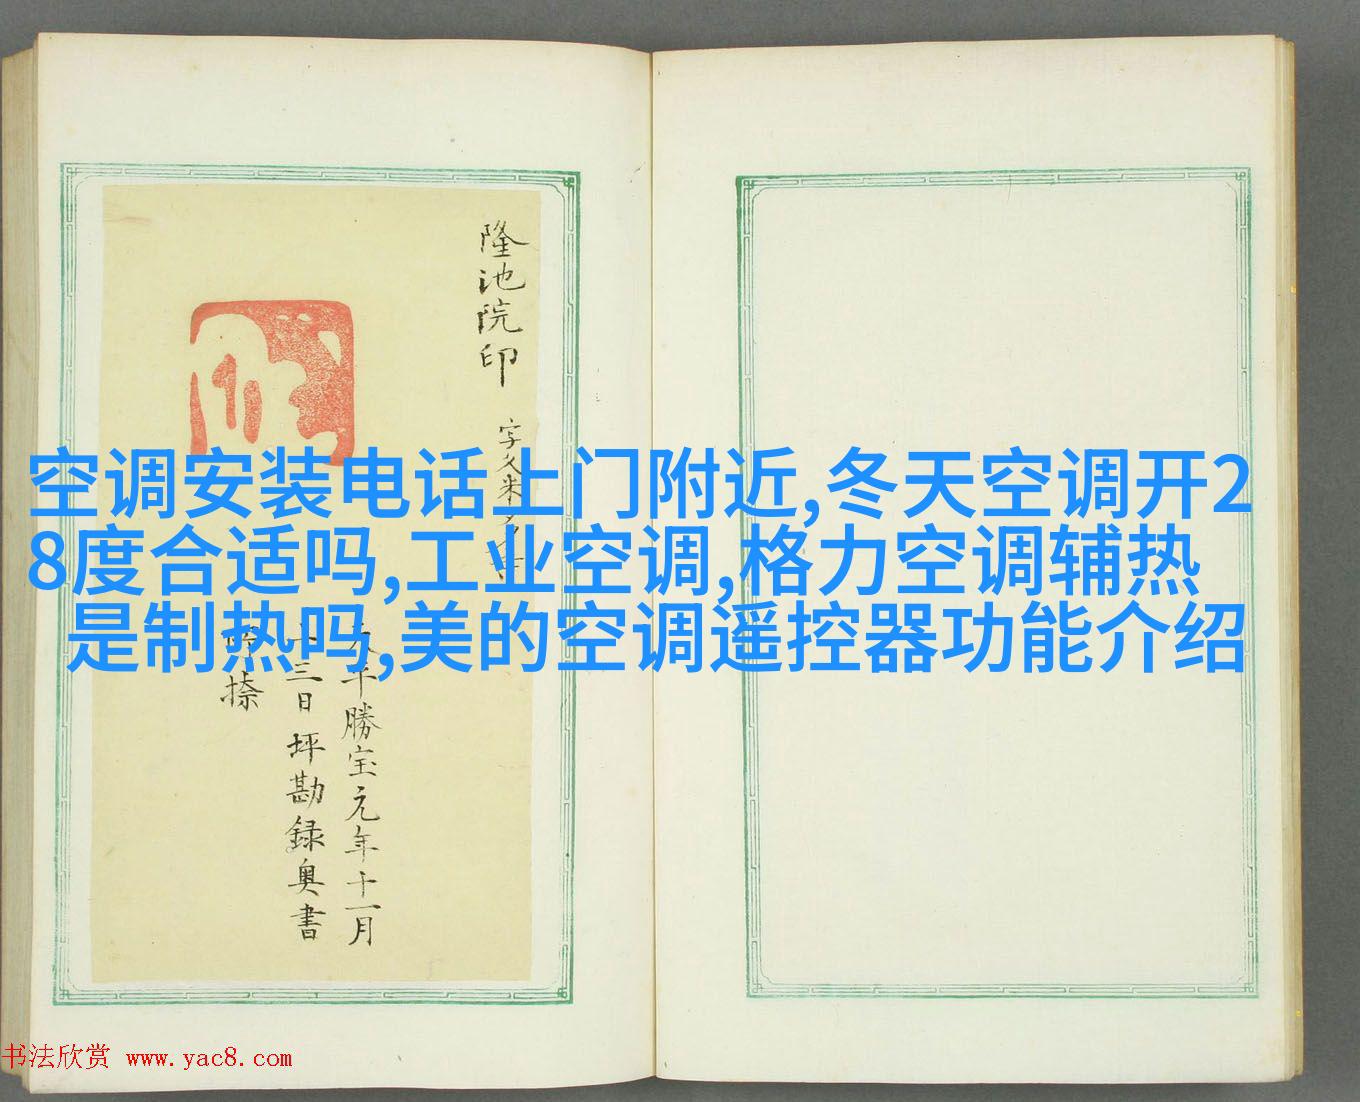 空调安装电话上门附近,冬天空调开2
8度合适吗,工业空调,格力空调辅热
是制热吗,美的空调遥控器功能介绍
隆池院印
字久米
勝宝元年十一月
三日坪勘録奥書
捺
书法欣赏 www.yac8.com